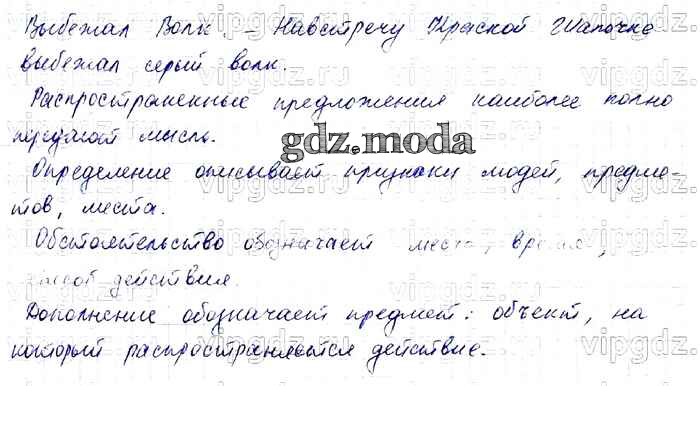 Выбежал Волк. – Навстречу Красной Шапочке
выбежал серый волк.
Распространенные предложения наиболее полно
передают мысль.
gdz.moda
Определение описывает признаки людей, предме-
тов, места.
Обстоятельство обозначает место, время,
способ действия.
Дополнение обозначает предмет: объект, на
который распространяется действие.
vipgdz.ru